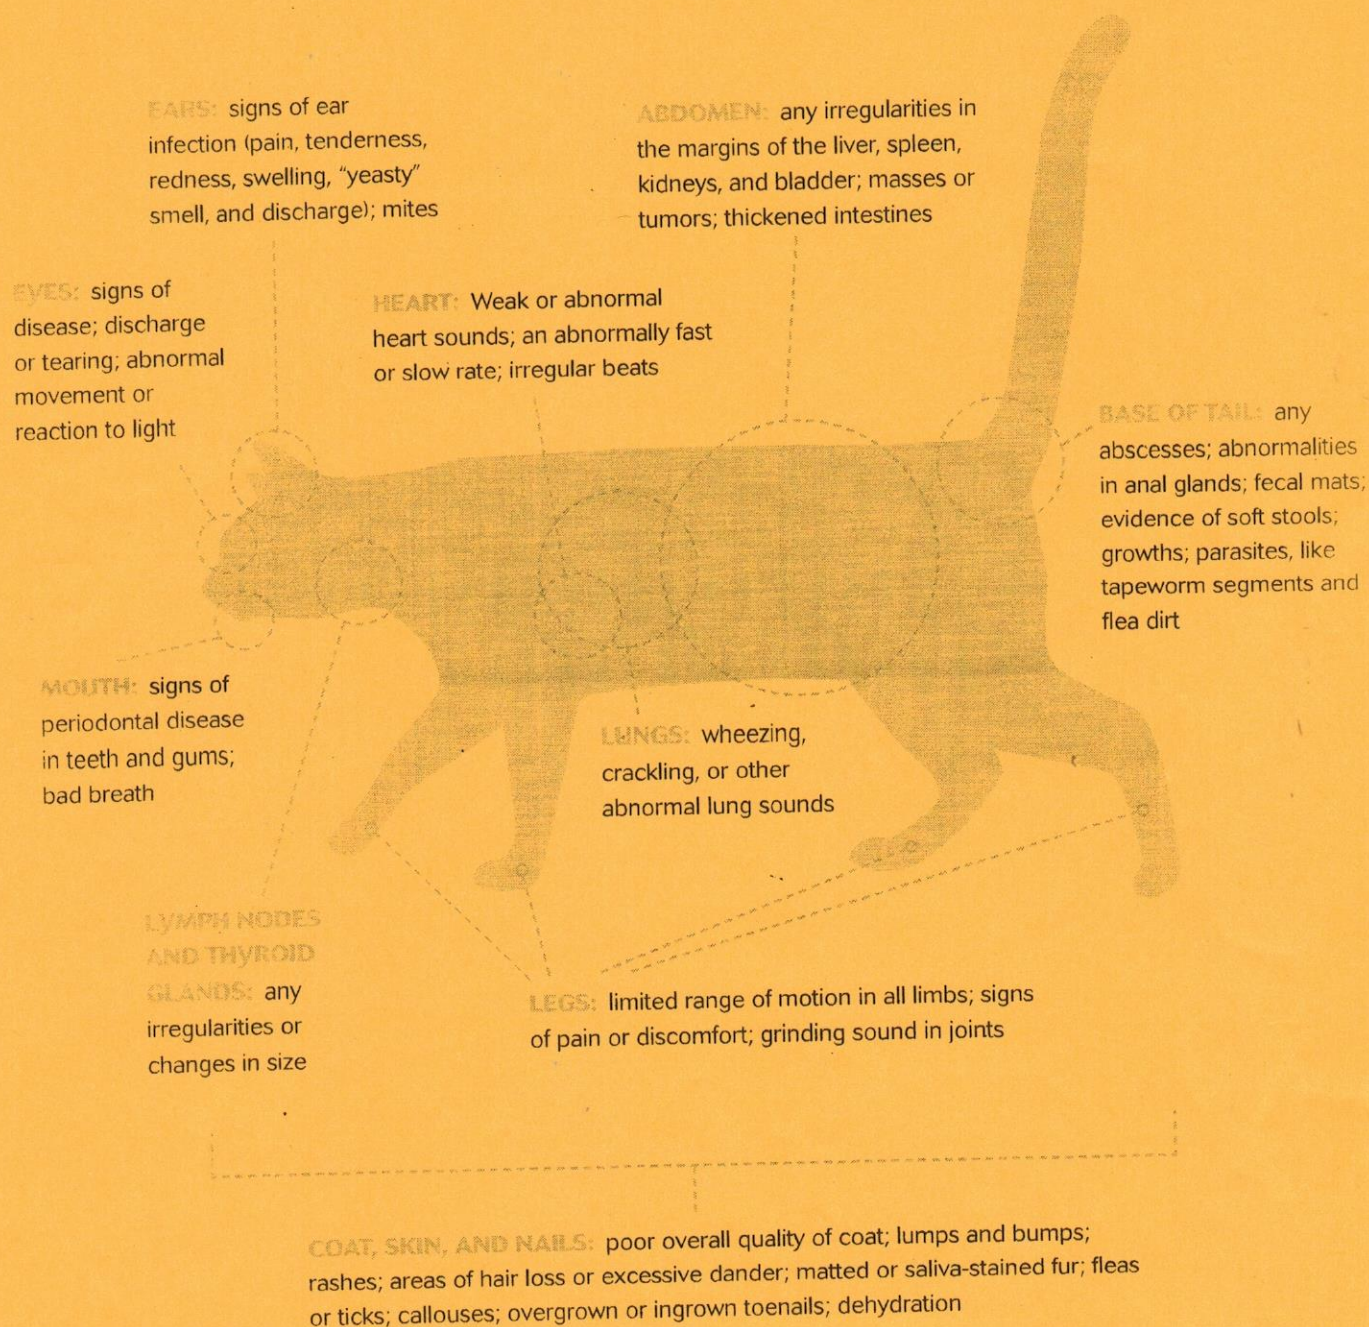 EARS: signs of ear
infection (pain, tenderness,
redness, swelling, “yeasty”
smell, and discharge); mites
ABDOMEN: any irregularities in
the margins of the liver, spleen,
kidneys, and bladder; masses or
tumors; thickened intestines
EYES: signs of
disease; discharge
or tearing; abnormal
movement or
reaction to light
HEART: Weak or abnormal
heart sounds; an abnormally fast
or slow rate; irregular beats
BASE OF TAIL: any
abscesses; abnormalities
in anal glands; fecal mats;
evidence of soft stools;
growths; parasites, like
tapeworm segments and
flea dirt
MOUTH: signs of
periodontal disease
in teeth and gums;
bad breath
LUNGS: wheezing,
crackling, or other
abnormal lung sounds
LYMPH NODES
AND THYROID
GLANDS: any
irregularities or
changes in size
LEGS: limited range of motion in all limbs; signs
of pain or discomfort; grinding sound in joints
COAT, SKIN, AND NAILS: poor overall quality of coat; lumps and bumps;
rashes; areas of hair loss or excessive dander; matted or saliva-stained fur; fleas
or ticks; callouses; overgrown or ingrown toenails; dehydration